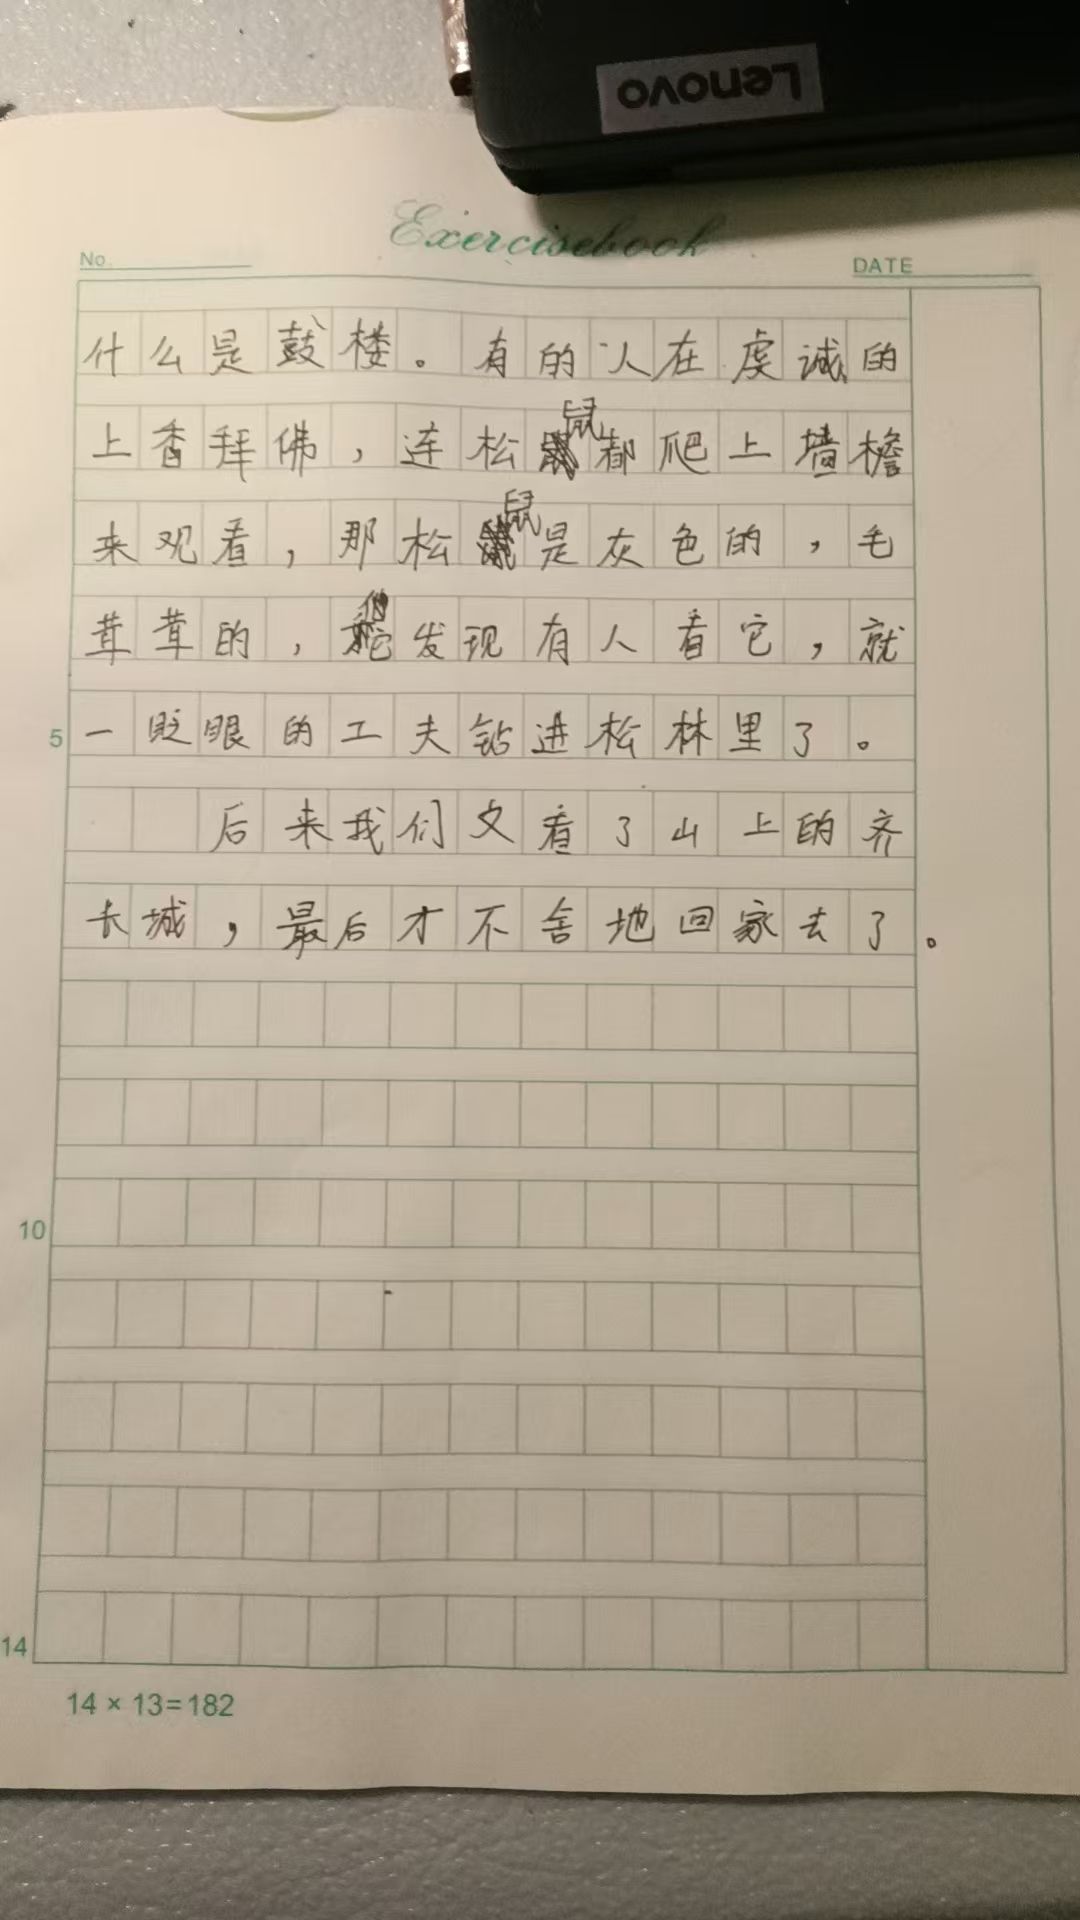 Lenovo
Exercisebook
No.
DATE
什么是鼓楼。有的人在虔诚的
上香拜佛，连松鼠都爬上墙檐
来观看，那松鼠是灰色的，毛
茸茸的，它发现有人看它，就
5 一眨眼的工夫钻进松林里了。
后来我们又看了山上的齐
长城，最后才不舍地回家去了。
10
14
14×13=182